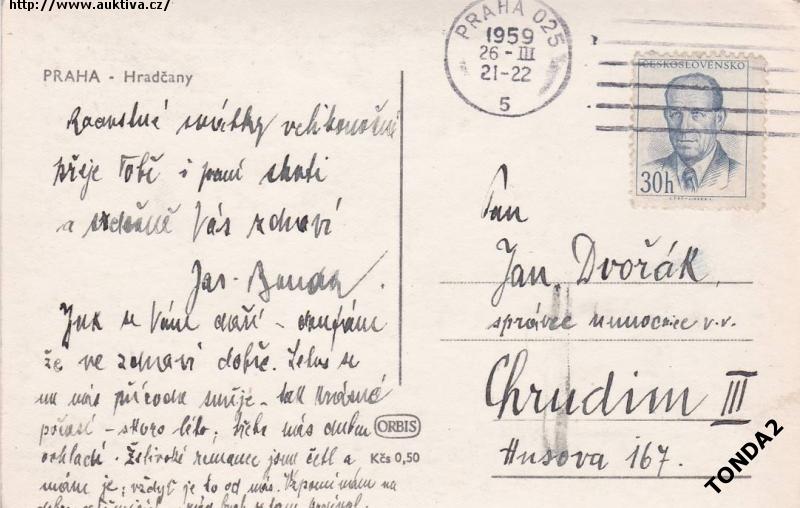 http://www.auktiva.cz/
PRAHA 025
1959
26-III
21-22
5
ČESKOSLOVENSKO
30h
PRAHA - Hradčany
Radostné svátky velikonoční
přeje Tobě i paní choti
a srdečně Vás zdraví
Jar. Benda.
Jak se Vám daří - doufám
že ve zdraví dobře. Letos se
na nás příroda směje - tak krásné
počasí - skoro léto, třeba nás duben
ochladí. Želivské romance jsem četl a
mám je, vždyť je to od nás. Vzpomínám na
ORBIS
Kčs 0,50
Pan
Jan Dvořák,
správce nemocnice v.v.
Chrudim III
Husova 167.
TONDA2